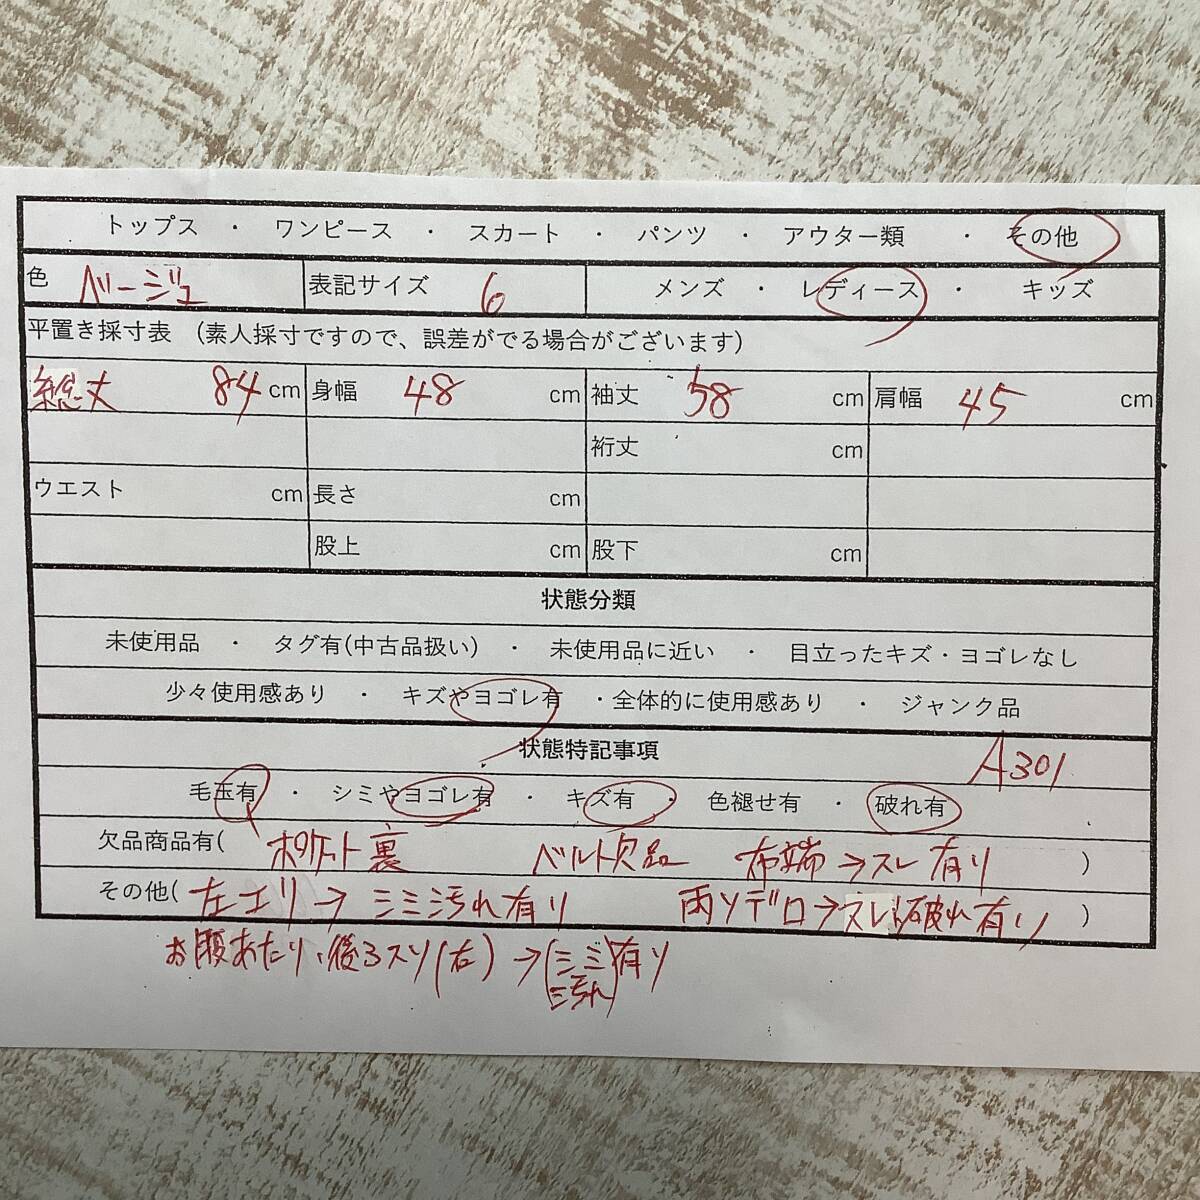 トップス ・ ワンピース ・ スカート ・ パンツ ・ アウター類 ・ その他
色 ベージュ 表記サイズ 6 メンズ ・ レディース ・ キッズ
平置き採寸表 (素人採寸ですので、誤差がでる場合がございます)
総丈 84 cm 身幅 48 cm 袖丈 58 cm 肩幅 45 cm
裄丈 cm
ウエスト cm 長さ cm
股上 cm 股下 cm
状態分類
未使用品 ・ タグ有(中古品扱い) ・ 未使用品に近い ・ 目立ったキズ・ヨゴレなし
少々使用感あり ・ キズやヨゴレ有 ・全体的に使用感あり ・ ジャンク品
状態特記事項 A301
毛玉有 ・ シミやヨゴレ有 ・ キズ有 ・ 色褪せ有 ・ 破れ有
欠品商品有( ポケット裏 ベルト欠品 布端→スレ有り )
その他( 左エリ→シミ汚れ有り 両ソデ口→スレ破れ有り )
お腹あたり、後ろスソ(右)→(シミ汚れ)有り